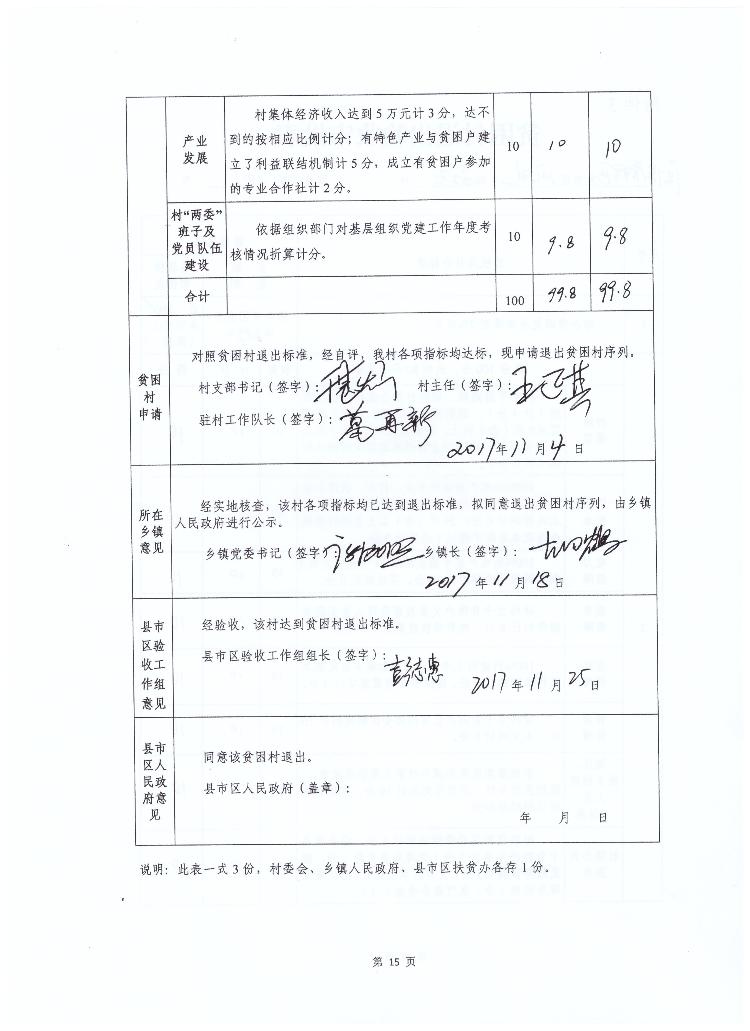 产业
发展
村集体经济收入达到5万元计3分，达不
到的按相应比例计分；有特色产业与贫困户建
立了利益联结机制计5分，成立有贫困户参加
的专业合作社计2分。
10
10
10
村“两委”
班子及
党员队伍
建设
依据组织部门对基层组织党建工作年度考
核情况折算计分。
10
9.8
9.8
合计
100
99.8
99.8
贫困
村
申请
对照贫困村退出标准，经自评，我村各项指标均达标，现申请退出贫困村序列。
村支部书记（签字）： 村主任（签字）：
驻村工作队长（签字）：葛再新
2017年11月4日
所在
乡镇
意见
经实地核查，该村各项指标均已达到退出标准，拟同意退出贫困村序列，由乡镇
人民政府进行公示。
乡镇党委书记（签字）： 乡镇长（签字）：
2017年11月18日
县市
区验
收工
作组
意见
经验收，该村达到贫困村退出标准。
县市区验收工作组组长（签字）：彭志惠
2017年11月25日
县市
区人
民政
府意
见
同意该贫困村退出。
县市区人民政府（盖章）：
年 月 日
说明：此表一式3份，村委会、乡镇人民政府、县市区扶贫办各存1份。
第 15 页